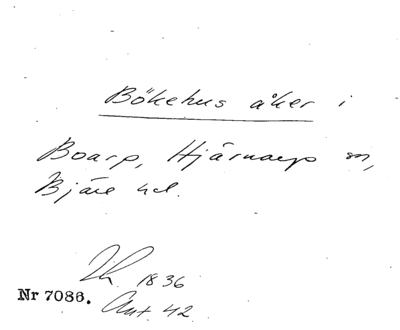 Bökehus åker i
Boarp, Hjärnarp sn,
Bjäre hd.
1836
Nr 7086. Akt 42